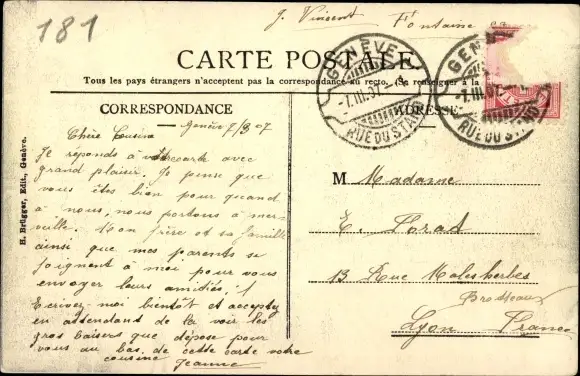 181
J. Vincent Fontaine
CARTE POSTALE.
Tous les pays étrangers n'acceptent pas la correspondance au recto. (Se renseigner à la
GENÈVE
-7.III.07-
RUE DU STAND
GENÈVE
-7.III.07-
RUE DU STAND
CORRESPONDANCE
ADRESSE
H. Brügger, Edit., Genève.
Genève 7/3 07
Chère Cousine
Je réponds à ta carte avec
grand plaisir. Je pense que
vous êtes bien pour quand
à nous, nous portons à mer-
veille. Mon frère et sa famille
ainsi que mes parents se
joignent à moi pour vous
envoyer leurs amitiés.
Ecrivez-moi bientôt et acceptez
en attendant de la voir les
gros baisers que dépose pour
vous au bas de cette carte votre
cousine Jeanne
M Madame
E. Forat
13 Rue Malesherbes
Brotteaux
Lyon France